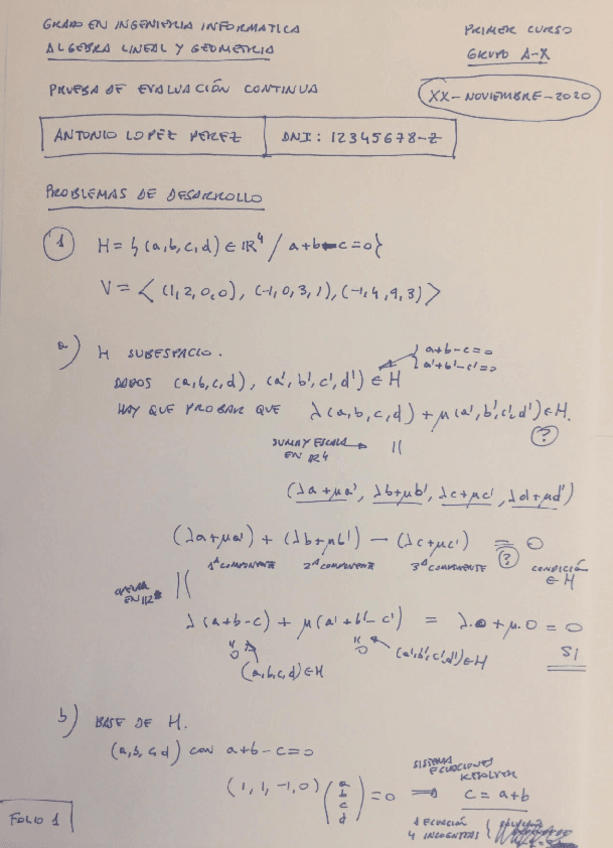 GRADO EN INGENIERIA INFORMATICA
ALGEBRA LINEAL Y GEOMETRIA
PRIMER CURSO
GRUPO A-X
PRUEBA DE EVALUACIÓN CONTINUA
XX-NOVIEMBRE-2020
ANTONIO LOPEZ PEREZ
DNI: 12345678-Z
PROBLEMAS DE DESARROLLO
1 H = { (a,b,c,d) ∈ ℝ⁴ / a+b-c=0}
V = < (1,2,0,0), (-1,0,3,1), (-1,4,9,3) >
a) H SUBESPACIO.
a+b-c=0
a'+b'-c'=0
DADOS (a,b,c,d), (a',b',c',d') ∈ H
HAY QUE PROBAR QUE λ(a,b,c,d) + μ(a',b',c',d') ∈ H.
?
SUMA Y ESCALA
EN ℝ⁴ → ||
(λa+μa', λb+μb', λc+μc', λd+μd')
(λa+μa') + (λb+μb') - (λc+μc') = 0
?
1ª COMPONENTE 2ª COMPONENTE 3ª COMPONENTE
CONDICIÓN
∈ H
OPERA
EN ℝ →
||
λ(a+b-c) + μ(a'+b'-c') = λ.0 + μ.0 = 0
" 0 " 0
SI
(a,b,c,d) ∈ H
(a',b',c',d') ∈ H
b) BASE DE H.
(a,b,c,d) CON a+b-c=0
SISTEMA
ECUACIONES
RESOLVER
(1,1,-1,0) (a b c d) = 0 ⇒ c = a+b
1 ECUACIÓN
4 INCOGNITAS {
FOLIO 1